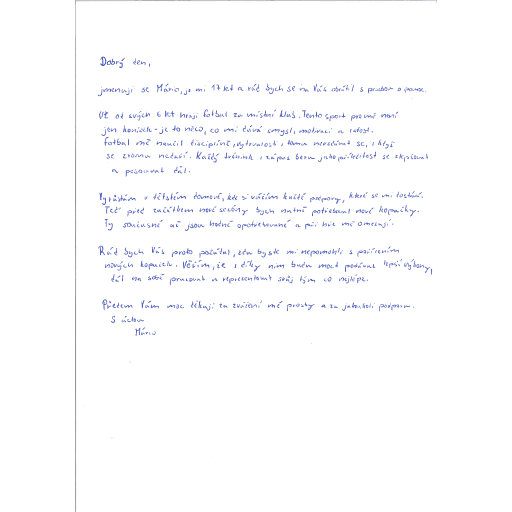 Dobrý den,
jmenuji se Mário, je mi 17 let a rád bych se na Vás obrátil s prosbou o pomoc.
Už od svých 6 let hraji fotbal za místní klub. Tento sport pro mě není
jen koníček - je to něco, co mi dává smysl, motivaci a radost.
Fotbal mě naučil disciplíně, vytrvalosti, tomu nevzdávat se, i když
se zrovna nedaří. Každý trénink i zápas beru jako příležitost se zlepšovat
a posouvat dál.
Vyrůstám v dětském domově, kde si vážím každé podpory, které se mi dostává.
Teď před začátkem nové sezóny bych nutně potřeboval nové kopačky.
Ty současné už jsou hodně opotřebované a při hře mě omezují.
Rád bych Vás proto požádal, zda byste mi nepomohli s pořízením
nových kopaček. Věřím, že i díky nim budu moct podávat lepší výkony,
dál na sobě pracovat a reprezentovat svůj tým co nejlépe.
Předem Vám moc děkuji za zvážení mé prosby a za jakoukoli podporu.
S úctou
Mário